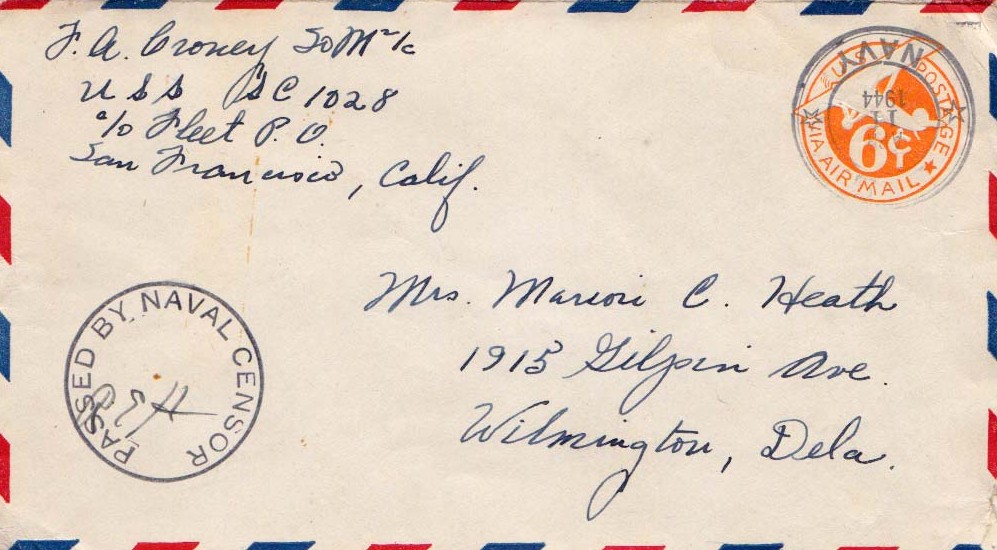 F. A. Croney SoM 2/c
U S S SC 1028
c/o Fleet P. O.
San Francisco, Calif.
U.S. POSTAGE
6¢
VIA AIR MAIL
NAVY
11
1944
Mrs. Marion C. Heath
1915 Gilpin Ave.
Wilmington, Dela.
PASSED BY NAVAL CENSOR